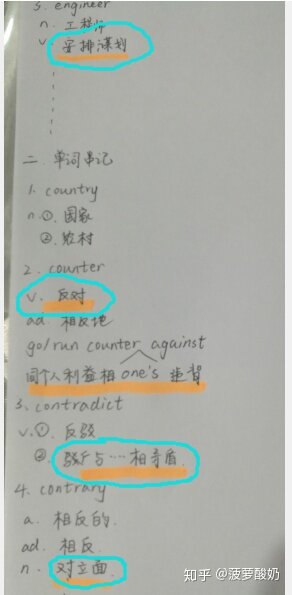 3. engineer
n. 工程师
v. 安排谋划
二. 单词串记
1. country
n. ① 国家
② 农村
2. counter
v. 反对
ad. 相反地
go/run counter against
同个人利益相 one's 违背
3. contradict
v. ① 反驳
② 与…相矛盾.
4. contrary
a. 相反的.
ad. 相反
n. 对立面.
知乎 @菠萝酸奶